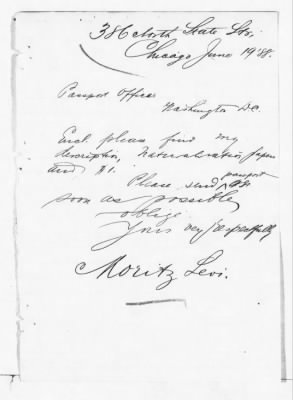 386 North State Str.
Chicago June 19 '88.
Passport Office
Washington D.C.
Encl. please find my
description, Naturalization paper
and $1.
Please send passport as
soon as possible,
oblige
Yours very respectfully
Moritz Levi.